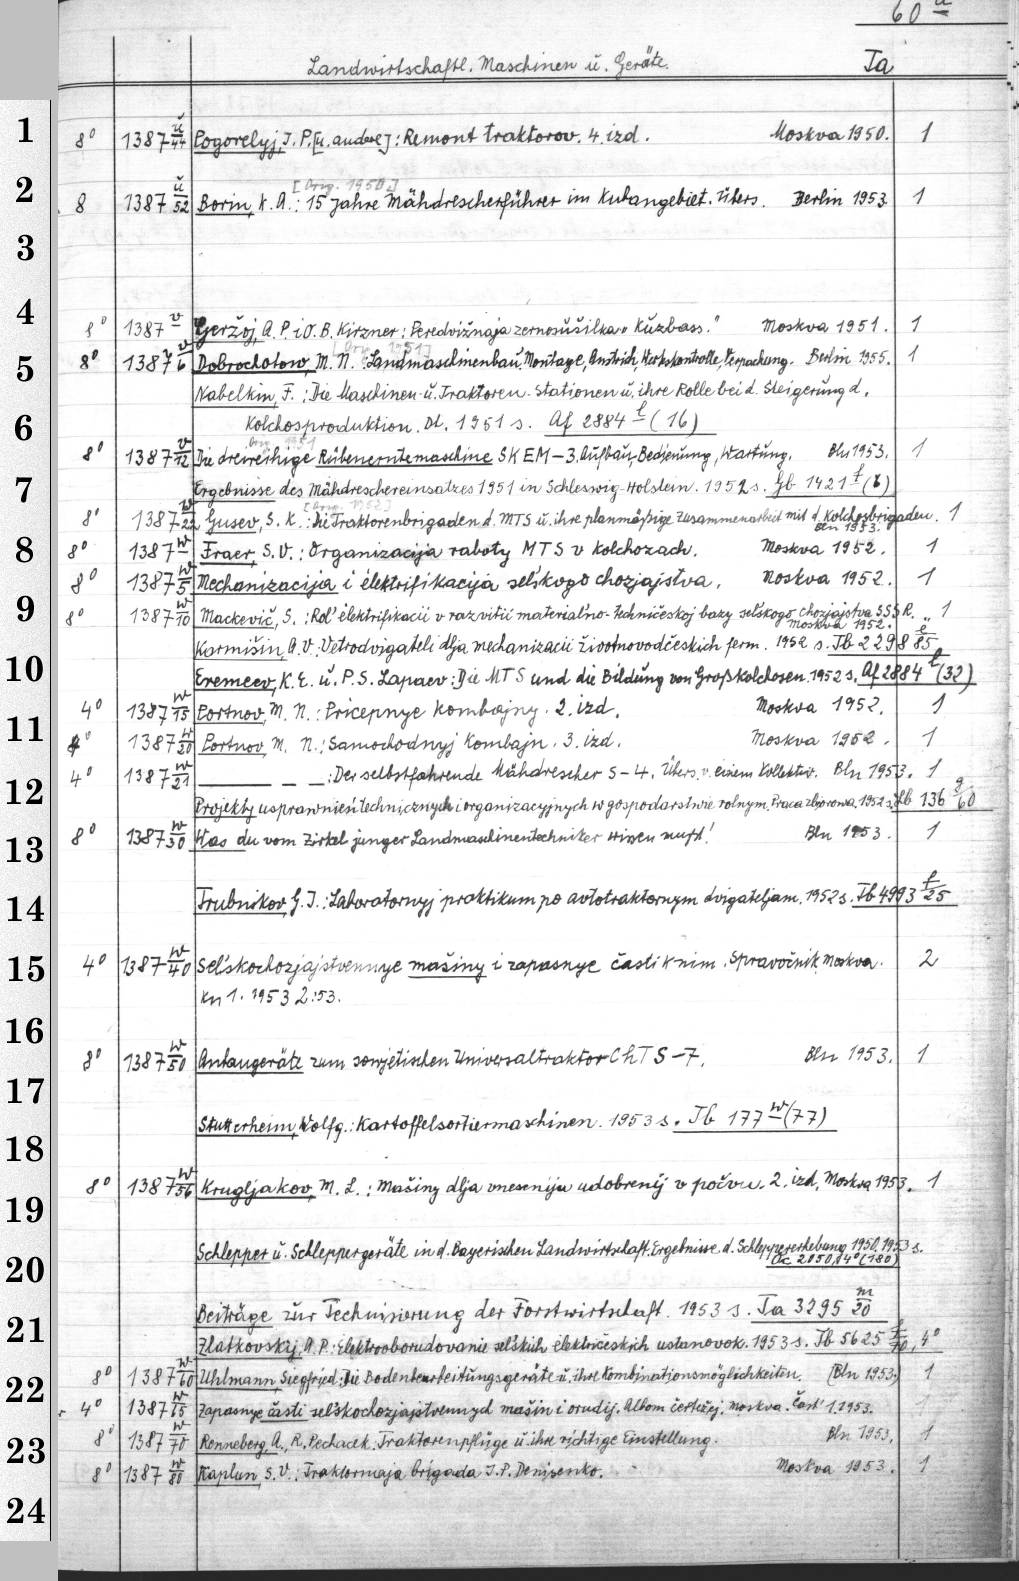 60 u
Landwirtschaftl. Maschinen u. Geräte. Ta
1
8° 1387 u/44 Pogorelyj, I. P. [u. andere]: Remont traktorov. 4. izd. Moskva 1950. 1
2
[Orig. 1950]
8 1387 u/52 Borin, K. A.: 15 Jahre Mähdrescherführer im Kubangebiet. Übers. Berlin 1953 1
3
4
8° 1387 v Geržoj, A. P. i O. B. Kirzner: Peredvižnaja zernosušilka „Kuzbass." Moskva 1951. 1
[Orig. 1951]
5
8° 1387 v/6 Dobrochotow, M. N.: Landmaschinenbau, Montage, Anstrich, Werkskontrolle, Verpackung. Berlin 1955. 1
Nabelkin, F.: Die Maschinen- u. Traktoren-Stationen u. ihre Rolle bei d. Steigerung d.
6
Kolchosproduktion. Dt. 1951 s. Af 2884 f (16)
Orig. 1951
8° 1387 v/12 Die dreireihige Rübenerntemaschine SKEM-3. Aufbau, Bedienung, Wartung. Bln 1953. 1
7
Ergebnisse des Mähdreschereinsatzes 1951 in Schleswig-Holstein. 1952 s. Gb 1421 f (6)
[Orig. 1952]
8° 1387 v/22 Gusev, S. K.: Die Traktorenbrigaden d. MTS u. ihre planmäßige Zusammenarbeit mit d. Kolchosbrigaden. 1
Bln 1953.
8
8° 1387 w Fraer, S. V.: Organizacija raboty MTS v kolchozach. Moskva 1952. 1
8° 1387 w/5 Mechanizacija i élektrifikacija sel'skogo chozjajstva. Moskva 1952. 1
9
8° 1387 w/10 Mackevič, S.: Rol' élektrifikacii v razvitii material'no-techničeskoj bazy sel'skogo chozjajstva SSSR. 1
Moskva 1952.
Karmišin, A. V.: Vetrodvigateli dlja mechanizacii životnovodčeskich ferm. 1952 s. Tb 2298 e/85
10
Eremeev, K. E. u. P. S. Lapaev: Die MTS und die Bildung von Großkolchosen. 1952 s. Af 2884 f (32)
4° 1387 w/15 Portnov, M. N.: Pricepnye kombajny. 2. izd. Moskva 1952. 1
11
8° 1387 w/20 Portnov, M. N.: Samochodnyj kombajn. 3. izd. Moskva 1952. 1
12
4° 1387 w/21 —— — —: Der selbstfahrende Mähdrescher S-4. Übers. v. einem Kollektiv. Bln 1953. 1
Projekty usprawnień technicznych i organizacyjnych w gospodarstwie rolnym. Praca zbiorowa. 1952 s. Lb 136 g/60
13
8° 1387 w/30 Was du vom Zirkel junger Landmaschinentechniker wissen mußt! Bln 1953. 1
14
Trubnikov, G. I.: Laboratornyj praktikum po avtotraktornym dvigateljam. 1952 s. Tb 4993 f/25
15
4° 1387 w/40 Sel'skochozjajstvennye mašiny i zapasnye časti k nim. Spravočnik. Moskva. 2
Kn 1. 1953 2:53.
16
8° 1387 w/50 Anbaugeräte zum sowjetischen Universaltraktor ChTS-7. Bln 1953. 1
17
Stutterheim, Wolfg.: Kartoffelsortiermaschinen. 1953 s. Tb 177 w (77)
18
8° 1387 w/56 Krugljakov, M. L.: Mašiny dlja vnesenija udobrenij v počvu. 2. izd. Moskva 1953. 1
19
Schlepper u. Schleppergeräte in d. Bayerischen Landwirtschaft. Ergebnisse d. Schleppererhebung 1950. 1953 s.
20
Oc 2050, 14° (180)
Beiträge zur Technisierung der Forstwirtschaft. 1953 s. Ta 3295 m/20
21
Zlatkovskij, A. P.: Elektrooborudovanie sel'skich élektričeskich ustanovok. 1953 s. Tb 5625 f/70, 4°
22
8° 1387 w/60 Uhlmann, Siegfried: Die Bodenbearbeitungsgeräte u. ihre Kombinationsmöglichkeiten. (Bln 1953.) 1
4° 1387 w/65 Zapasnye časti sel'skochozjajstvennych mašin i orudij. Albom čertežej. Moskva. Čast' 1. 1953. 1
23
8° 1387 w/70 Renneberg, A., R. Pechacek: Traktorenpflüge u. ihre richtige Einstellung. Bln 1953. 1
8° 1387 w/80 Kaplun, S. V.: Traktornaja brigada I. P. Denisenko. Moskva 1953. 1
24